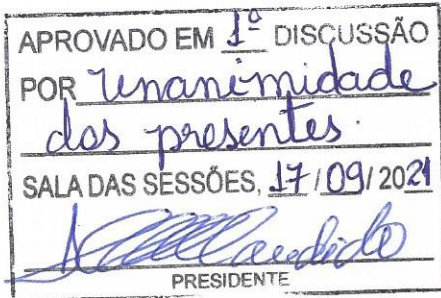 APROVADO EM 1ª DISCUSSÃO
POR Unanimidade
dos presentes.
SALA DAS SESSÕES, 17/09/2021
PRESIDENTE